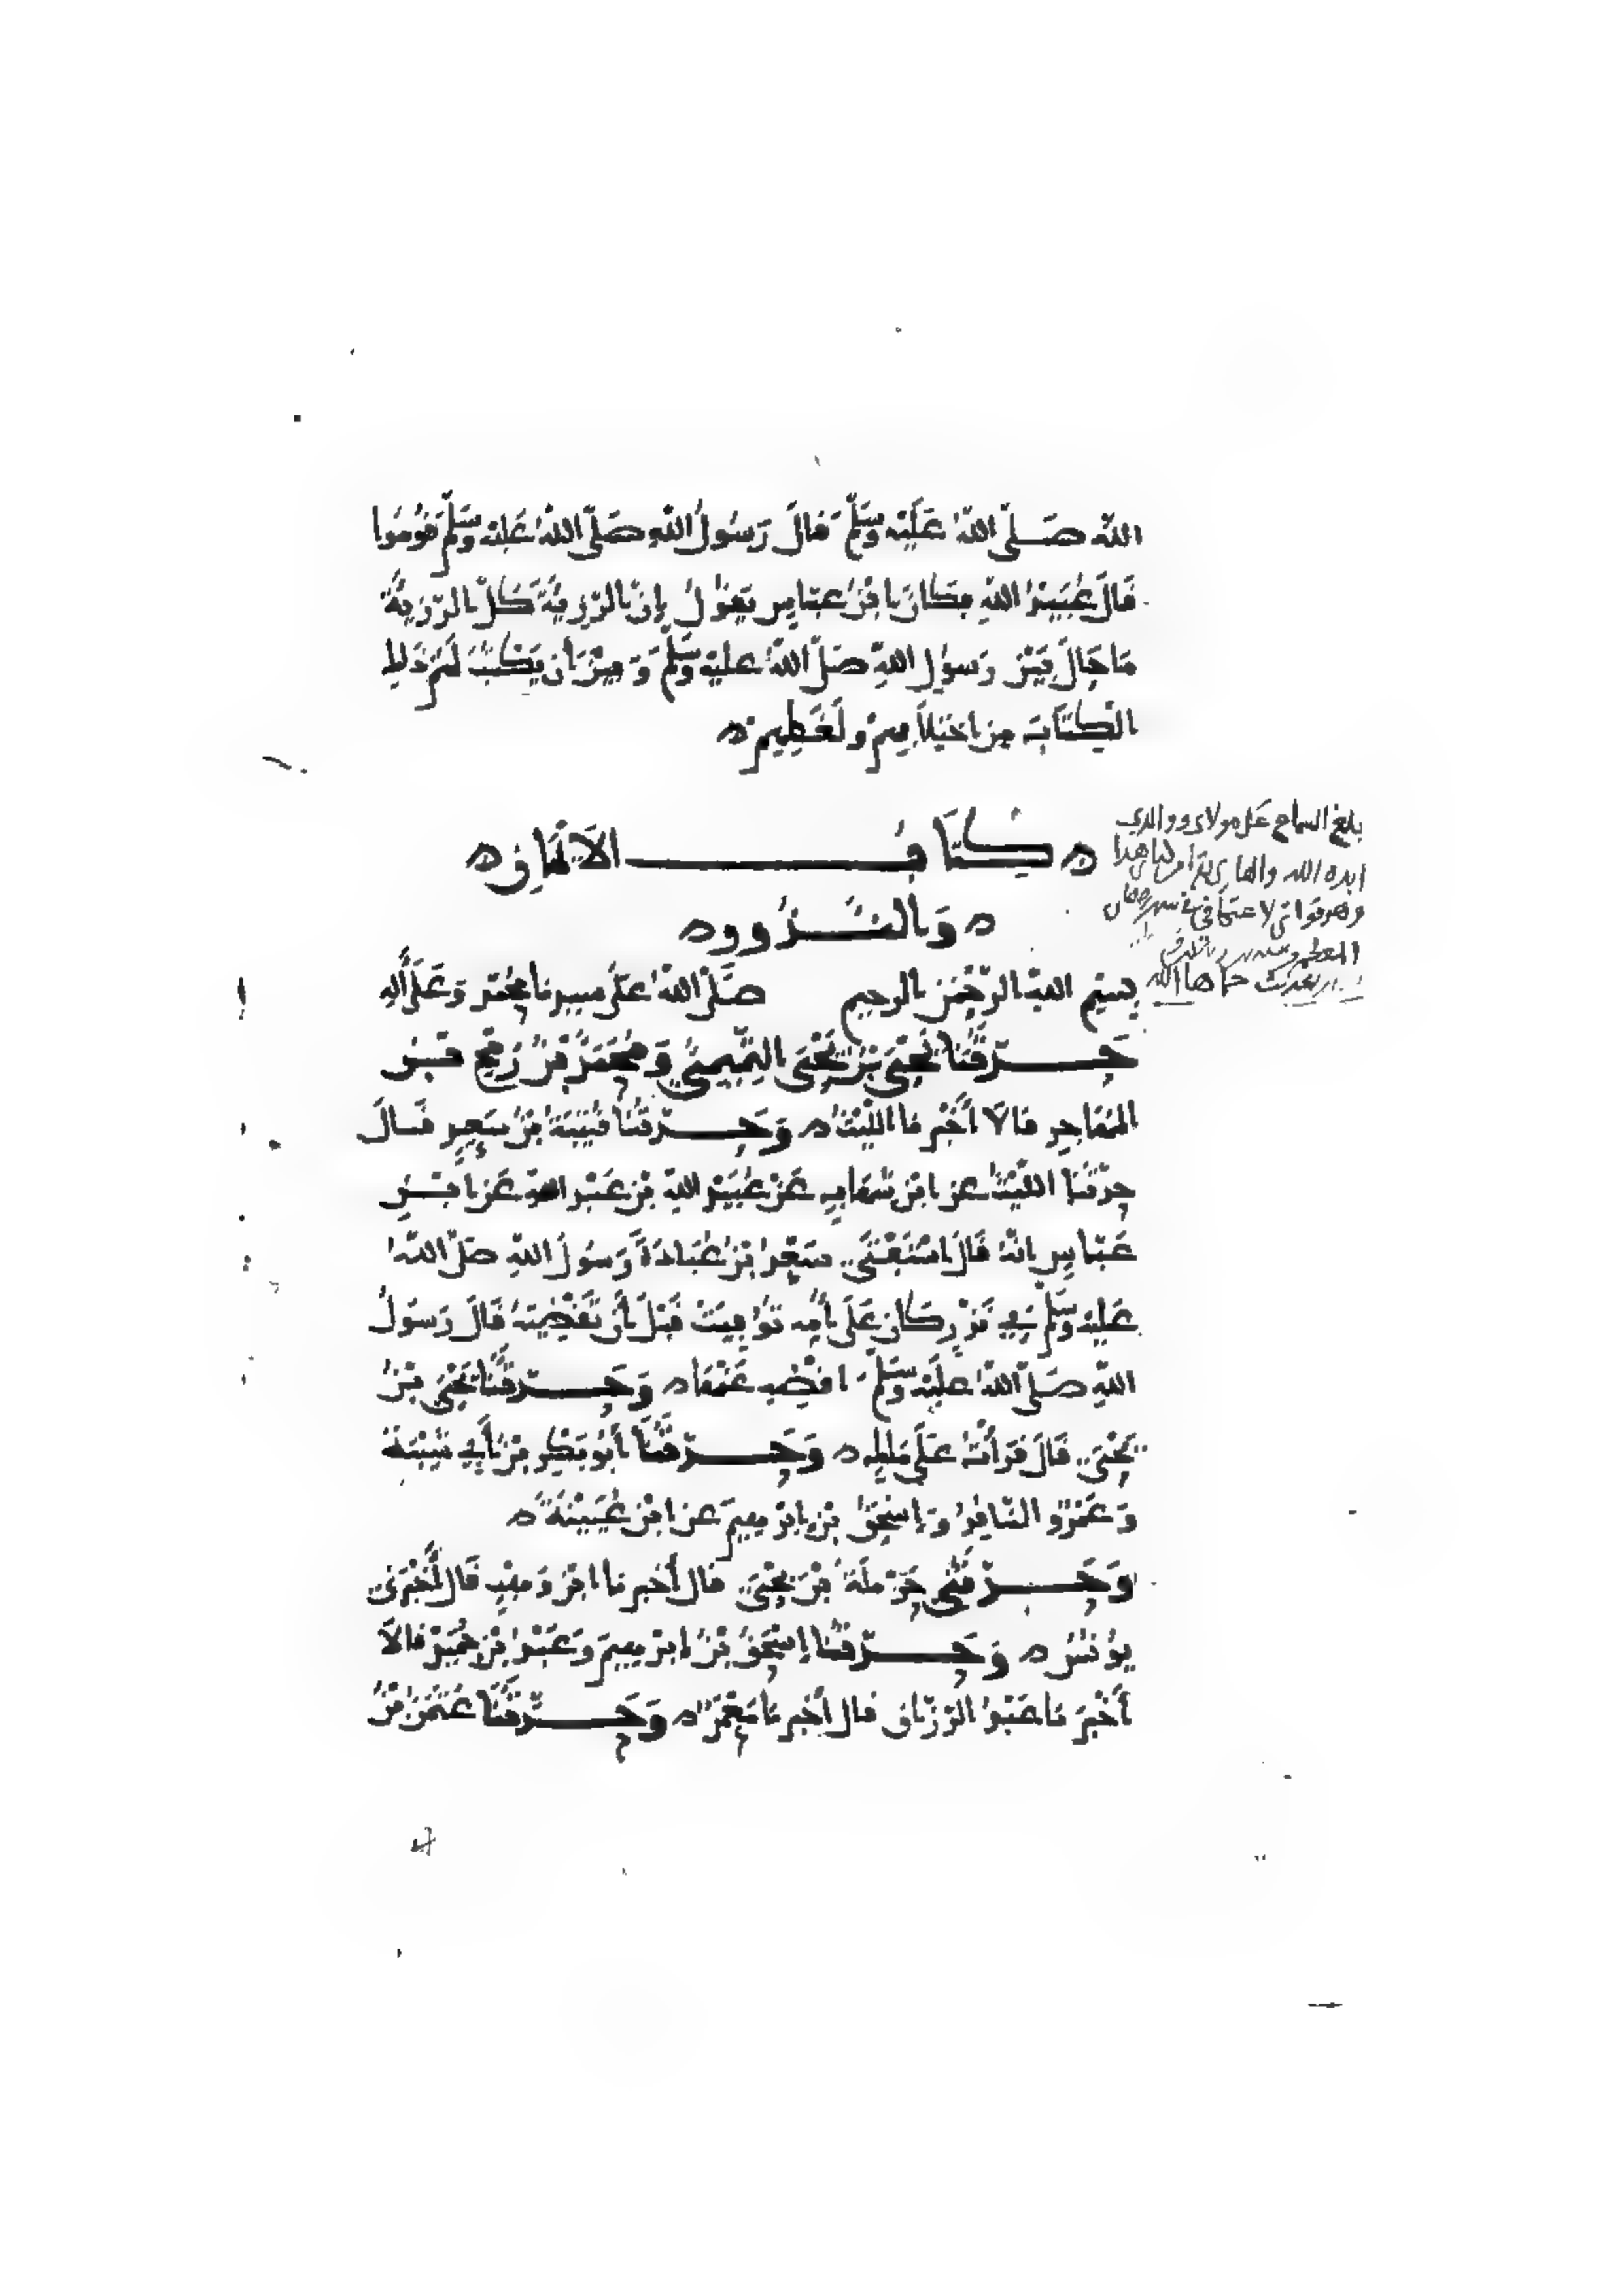 الله صَلّى اللهُ عَلَيْه وَسَلّمَ فَالَ رَسُولُ اللهِ صَلّى اللهُ عَليْه وَسَلّم فُومُوا
فَالَ عُبَيْدُ اللهِ فكَانَ ابْنُ عبّاس يَقولُ إنّ الرّزيةَ كُلّ الرّزيةِ
مَا حَالَ بَيْنَ رَسولِ اللهِ صَلّى اللهُ عليْه وَسَلّم وَبيْنَ أن يَكْتُبَ لَهُمْ ذَلك
الكِتَابَ مِن اخْتِلَافِهِمْ وَلَغَطِهِمْ ه
ه كِتَابُ الأيْمَانِ ه
ه وَالنُّذُورِ ه
بِسْمِ اللهِ الرّحْمَنِ الرحيم صَلّى اللهُ عَلَى سيدنا مُحَمّد وَعَلَى آلِهِ
حَدّثَنَا يَحْيَى بْنُ يَحْيَى التّمِيمِيُّ وَمُحَمّدُ بْنُ رُمْحِ بْنِ
المُهَاجِرِ قَالَا أَخْبَرنَا اللّيْثُ ه وَحَدّثَنَا قُتَيْبَةُ بْنُ سَعِيدٍ قَالَ
حدّثَنَا اللّيْثُ عن ابْنِ شهَابٍ عَنْ عُبَيْدِ اللهِ بْنِ عَبْدِ اللهِ عَنِ ابْنِ
عَبّاسٍ انّهُ قَالَ اسْتَفْتَى سَعْدُ بْنُ عُبَادَةَ رَسُولَ اللهِ صَلّى اللهُ
عَليْه وَسَلّم في نَذْرٍ كَانَ عَلَى أُمِّه تُوُفِيَتْ قَبْلَ أنْ تَقْضِيَهُ قَالَ رَسُولُ
اللهِ صَلّى اللهُ عليْه وَسَلّمَ اقْضِهِ عَنْهَا ه وَحَدّثَنَا يَحْيَى بْنُ
يَحْيَى قَالَ قَرَأْتُ عَلَى مَالِكٍ ه وَحَدّثَنَا أبُو بَكْرِ بْنُ أَبِي شَيْبَةَ
وَعَمْرٌو النّاقِدُ وَإسْحَقُ بْنُ ابْرهِيمَ عَنِ ابْنِ عُيَيْنَةَ ه
وَحَدّثَنِي حَرْمَلَةُ بْنُ يَحْيَى قال أخبرنا ابْنُ وَهْبٍ قَال أَخْبَرَني
يُونُسُ ه وَحَدّثَنَا إسْحَقُ بْنُ ابْرهِيمَ وَعَبْدُ بْنُ حُمَيْدٍ قَالَا
أَخْبَرَنَا عَبْدُ الرّزّاقِ قال أَخْبَرنَا مَعْمَرٌ ه وَحَدّثَنَا عُثْمَنُ بْنُ
بلغ السماع على مولاي ووالدي
ايده الله